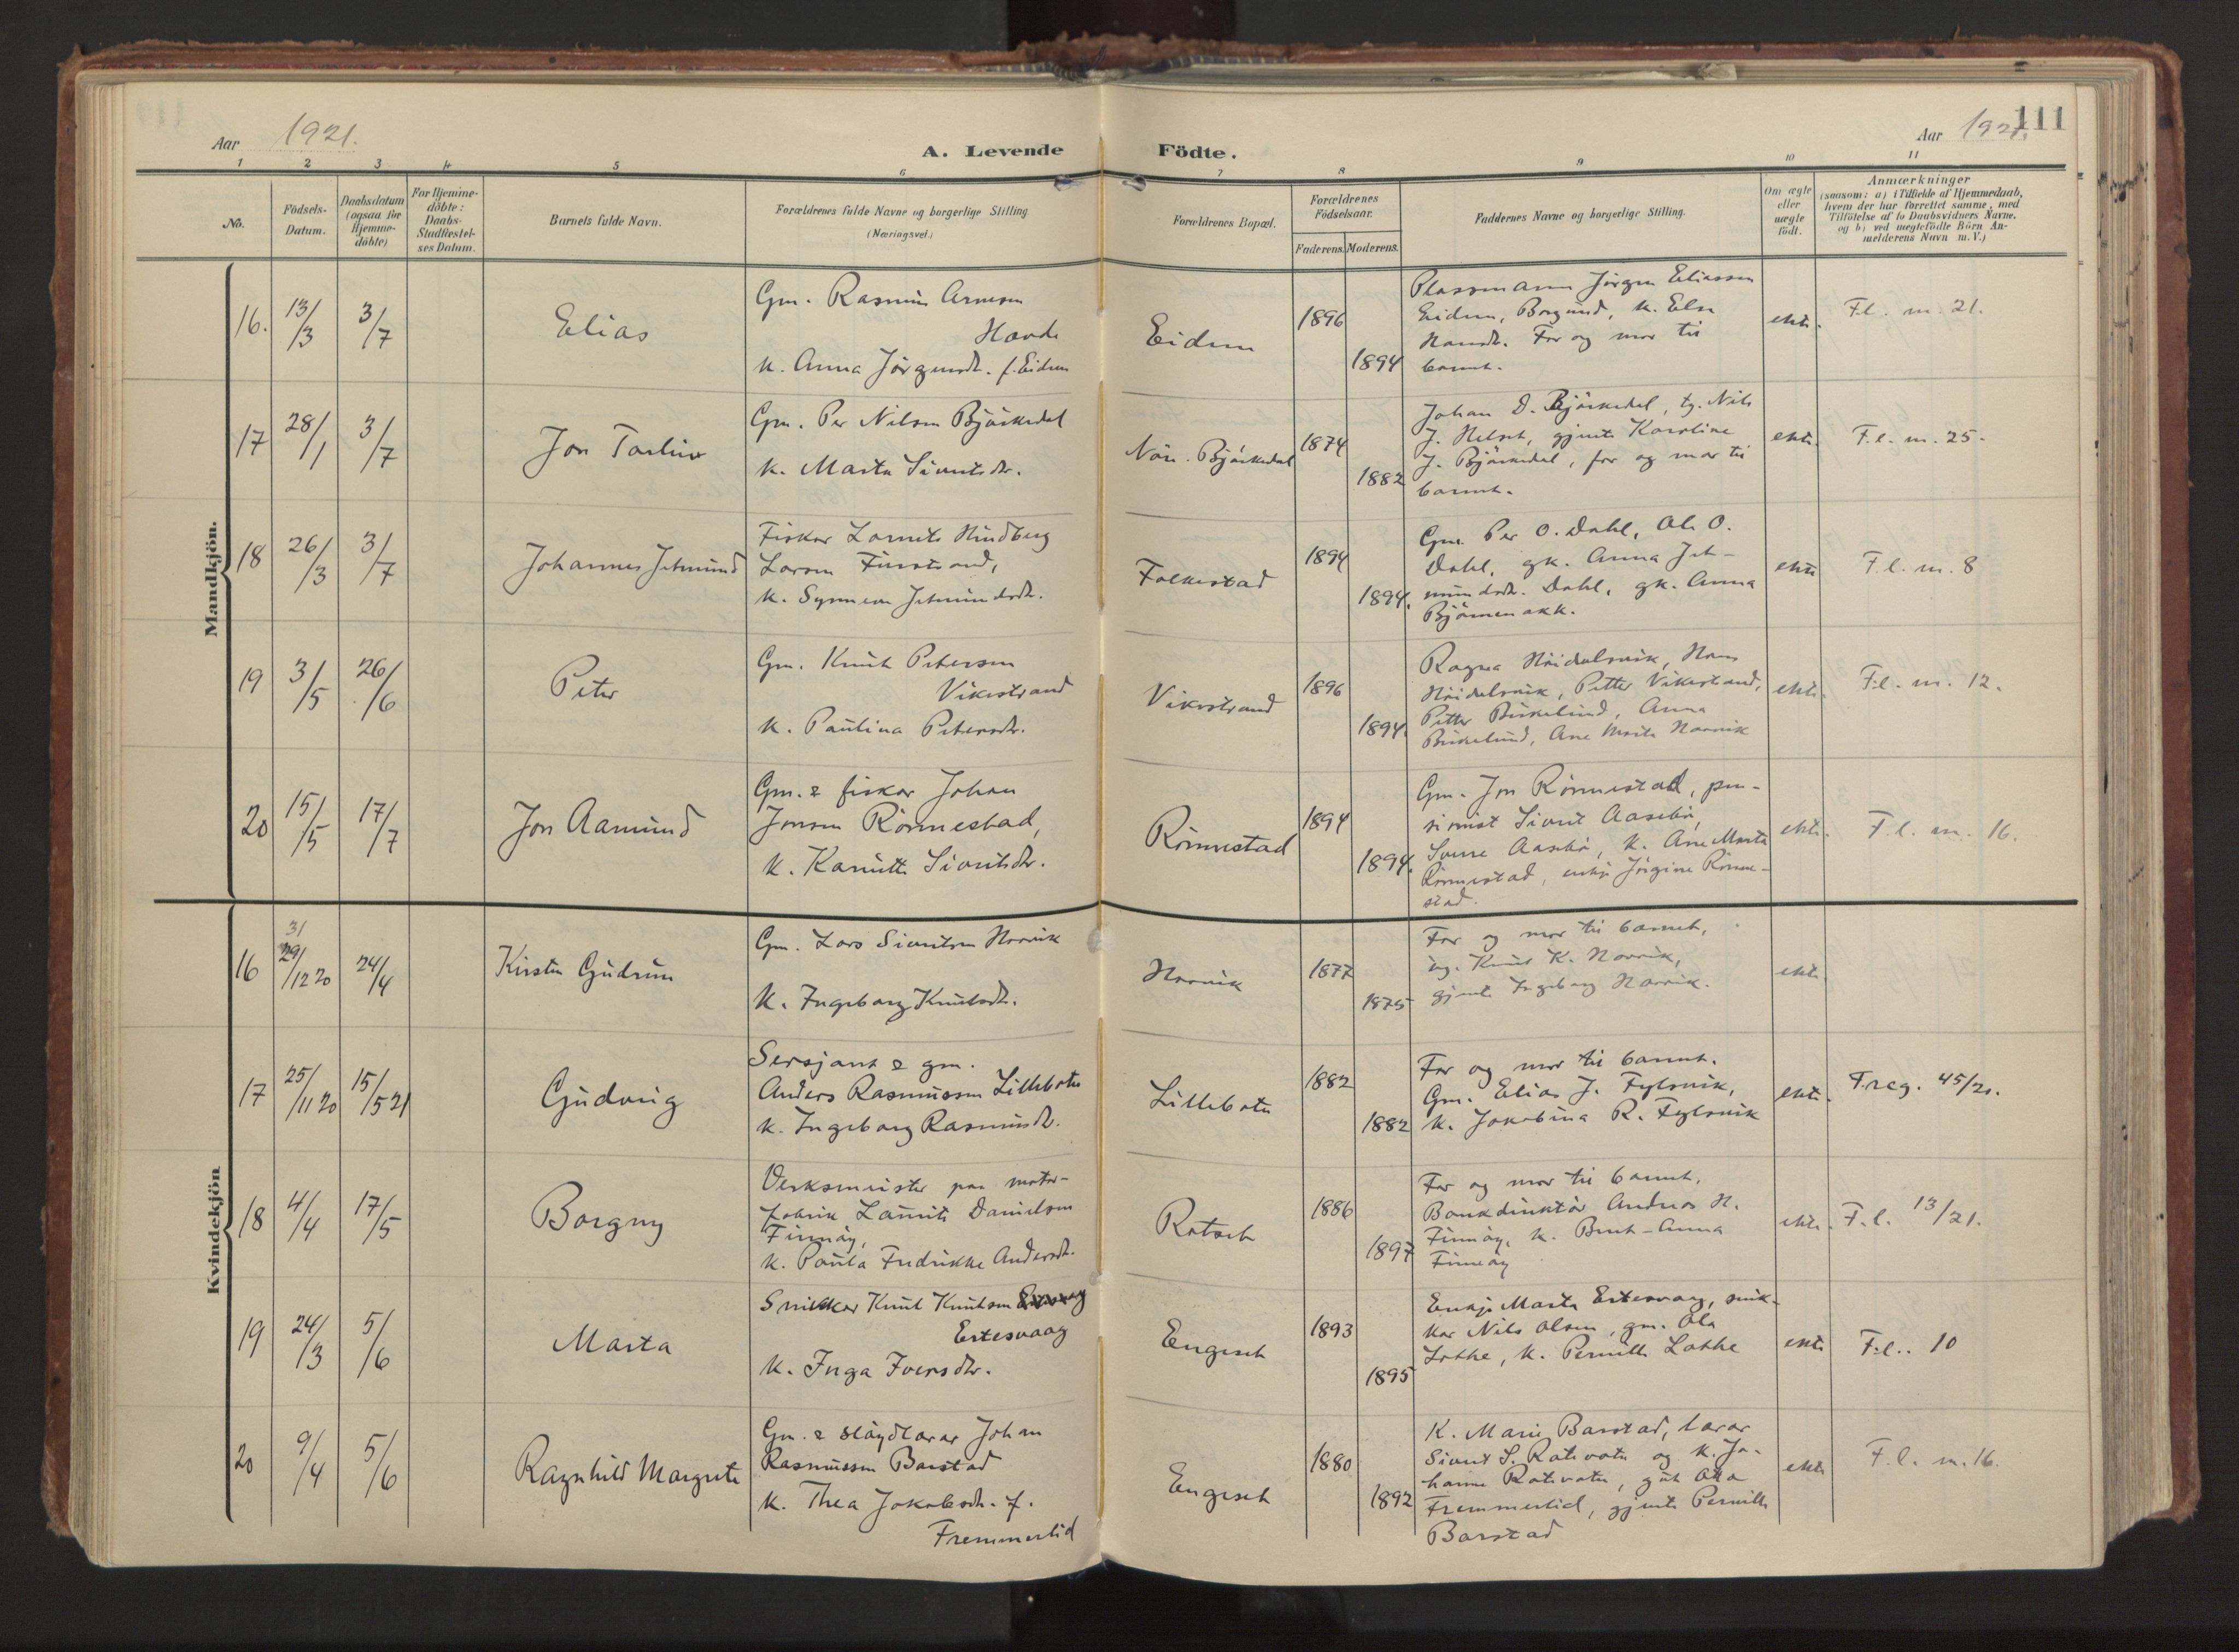 Aar 1921.
A. Levende Födte.
Aar 1921.
111
1 2 3 4 5 6 7 8 9 10 11
No.
Födsels-
Datum.
Daabsdatum
(ogsaa for
Hjemme-
döbte)
For Hjemme-
döbte:
Daabs-
Stadfæstel-
ses Datum.
Barnets fulde Navn.
Forældrenes fulde Navne og borgerlige Stilling
(Næringsvei.)
Forældrenes Bopæl.
Forældrenes
Födselsaar.
Faderens. Moderens.
Faddernes Navne og borgerlige Stilling.
Om ægte
eller
uægte
født.
Anmærkninger
(saasom: a) i Tilfælde af Hjemmedaab,
hvem der har forrettet samme, med
Tilföielse af to Daabsvidners Navne.
og b) ved uægtefödte Börn An-
melderens Navn m. V.)
Mandkjön.
16.
13/3
3/7
Elias
Gm. Rasmus Arneson
Havde
k. Anna Jörgensdr. f. Eidem
Eidem
1896
1894
Plassmann Jörgen Eliassen
Eidem, Borgund, k. Else
Hansdr. Far og mor til
barnet.
ekte.
F.l. m. 21.
17
28/1
3/7
Jon Torleiv
Gm. Per Nilsen Björkedal
k. Marta Sivertsdr.
Nöre Björkedal
1874
1882
Johan D. Björkedal, ug. Nils
J. Helset, gjente Karoline
J. Björkedal, far og mor til
barnet.
ekte.
F.l. m. 25.
18
26/3
3/7
Johannes Jetmund
Fisker Laurits Hindberg
Larsen Furstrand,
k. Synneva Jetmundsdr.
Folkestad
1894
1894.
Gm. Per O. Dahl, Ole O.
Dahl, gk. Anna Jet-
mundsdr. Dahl, gk. Anna
Björnenakk.
ekte
F.l. m. 8
19
3/5
26/6
Peter
Gm. Knut Petersen
Vikestrand
k. Paulina Petersdr.
Vikestrand
1896
1894.
Ragna Höidalsvik, Hans
Höidalsvik, Petter Vikestrand,
Petter Birkelund, Anna
Birkelund, Ane Marte Norvik
ekte.
F.l. m. 12.
20
15/5
17/7
Jon Aamund
Gm. & fisker Johan
Jonsen Rönnestad,
k. Kanutte Sivertsdr.
Rönnestad
1894
1894.
Gm. Jon Rönnestad, pen-
sionist Sivert Aasebö,
Sverre Aasebö, k. Ane Marta
Rönnestad, enkje Jörgine Rönne-
stad.
ekte.
F.l. m. 16.
Kvindekjön
16
31
29/12 20
24/4
Kirsten Gudrun
Gm. Lars Sivertsen Norvik
k. Ingeborg Knutsdr.
Norvik
1877
1875
Far og mor til barnet,
ug. Knut K. Norvik,
gjente Ingeborg Norvik.
ekte.
17
25/11 20
15/5 21
Gudveig
Sersjant & gm.
Anders Rasmussen Lillebote
k. Ingeborg Rasmusdr.
Lillebote
1882
1882
Far og mor til barnet.
Gm. Elias J. Fylsvik,
k. Jakobina R. Fylsvik
ekte.
F.reg. 45/20.
18
4/4
17/5
Borgny
Verksmeister paa motor-
fabrik Laurits Danielsen
Finnöy,
k. Paula Fredrikke Andersdr.
Rotset
1886
1897
Far og mor til barnet,
Bankdirektör Andreas H.
Finnöy, k. Beret-Anna
Finnöy
ekte.
F.l. 13/21.
19
24/3
5/6
Marta
Snikkar Knut Knutsen
Ertesvaag
k. Inga Iversdr.
Engeset
1893
1895
Enkje Marta Ertesvaag, snik-
kar Nils Olsen, gm. Ola
Lothe, k. Pernille Lothe
ekte
F.l. 10
20
9/4
5/6
Ragnhild Margrete
Gm. & slöydlærar Johan
Rasmussen Barstad
k. Thea Jakobsdr. f.
Fremmerlid
Engeset
1880
1892
K. Marie Barstad, lærar
Sivert S. Rotevatn og k. Jo-
hanne Rotevatn, gut Ola
Fremmerlid, gjente Pernille
Barstad
ekte
F.l. m. 16.